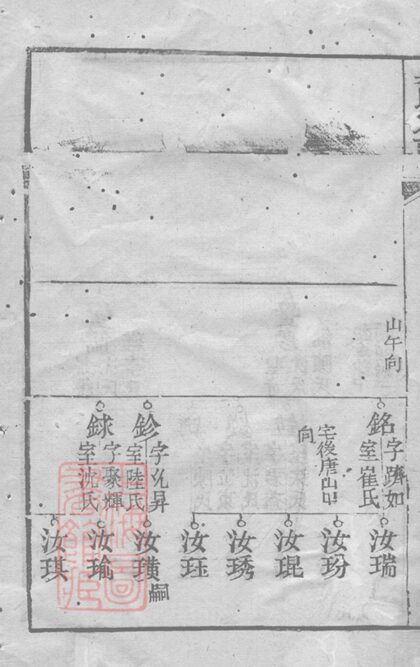 山午向
銘
字躋如
室崔氏
宅後唐山
向
鈔
室陸氏
銶
字聚輝
室沈氏
汝瑞
汝玢
汝琨
汝琇
汝珏
汝璜嗣
汝瑜
汝琪